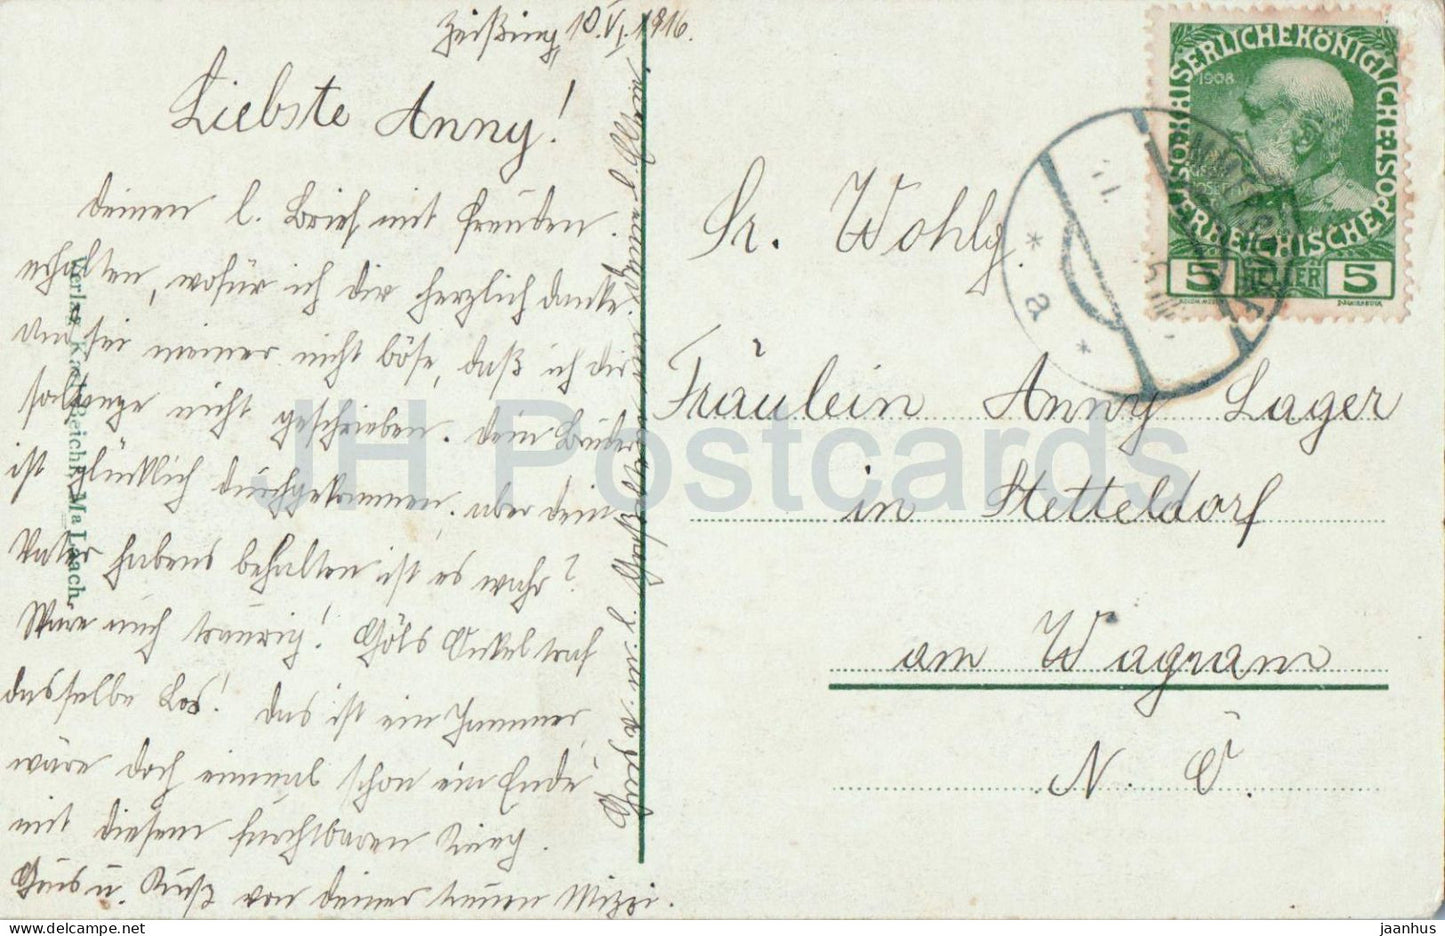 Zeißing 10.VI.1916.
Liebste Anny!
Deinen l. Brief mit Freuden
erhalten, wofür ich dir herzlich danke.
Und sei meiner nicht böse, daß ich dir
solange nicht geschrieben. Dein Bruder
ist glücklich durchgekommen. aber dein
Vater habens behalten ist es wahr?
Wäre auch traurig! Göls Onkel traf
dasselbe Los! Das ist ein Jammer,
wäre doch einmal schon ein Ende
mit diesem furchtbaren Krieg.
Grus u. Kuß von deiner treuen Mizzi.
Verlag Karl Reichl, Ma. Laach.
Sr. Wohlg.
Fräulein Anny Lager
in Stetteldorf
am Wagram
N. Ö.
KAISERLICHE KÖNIGLICHE
ÖSTERREICHISCHE POST
1908
5 HELLER 5
* a *
JH Postcards
www.delcampe.net
jaanhus